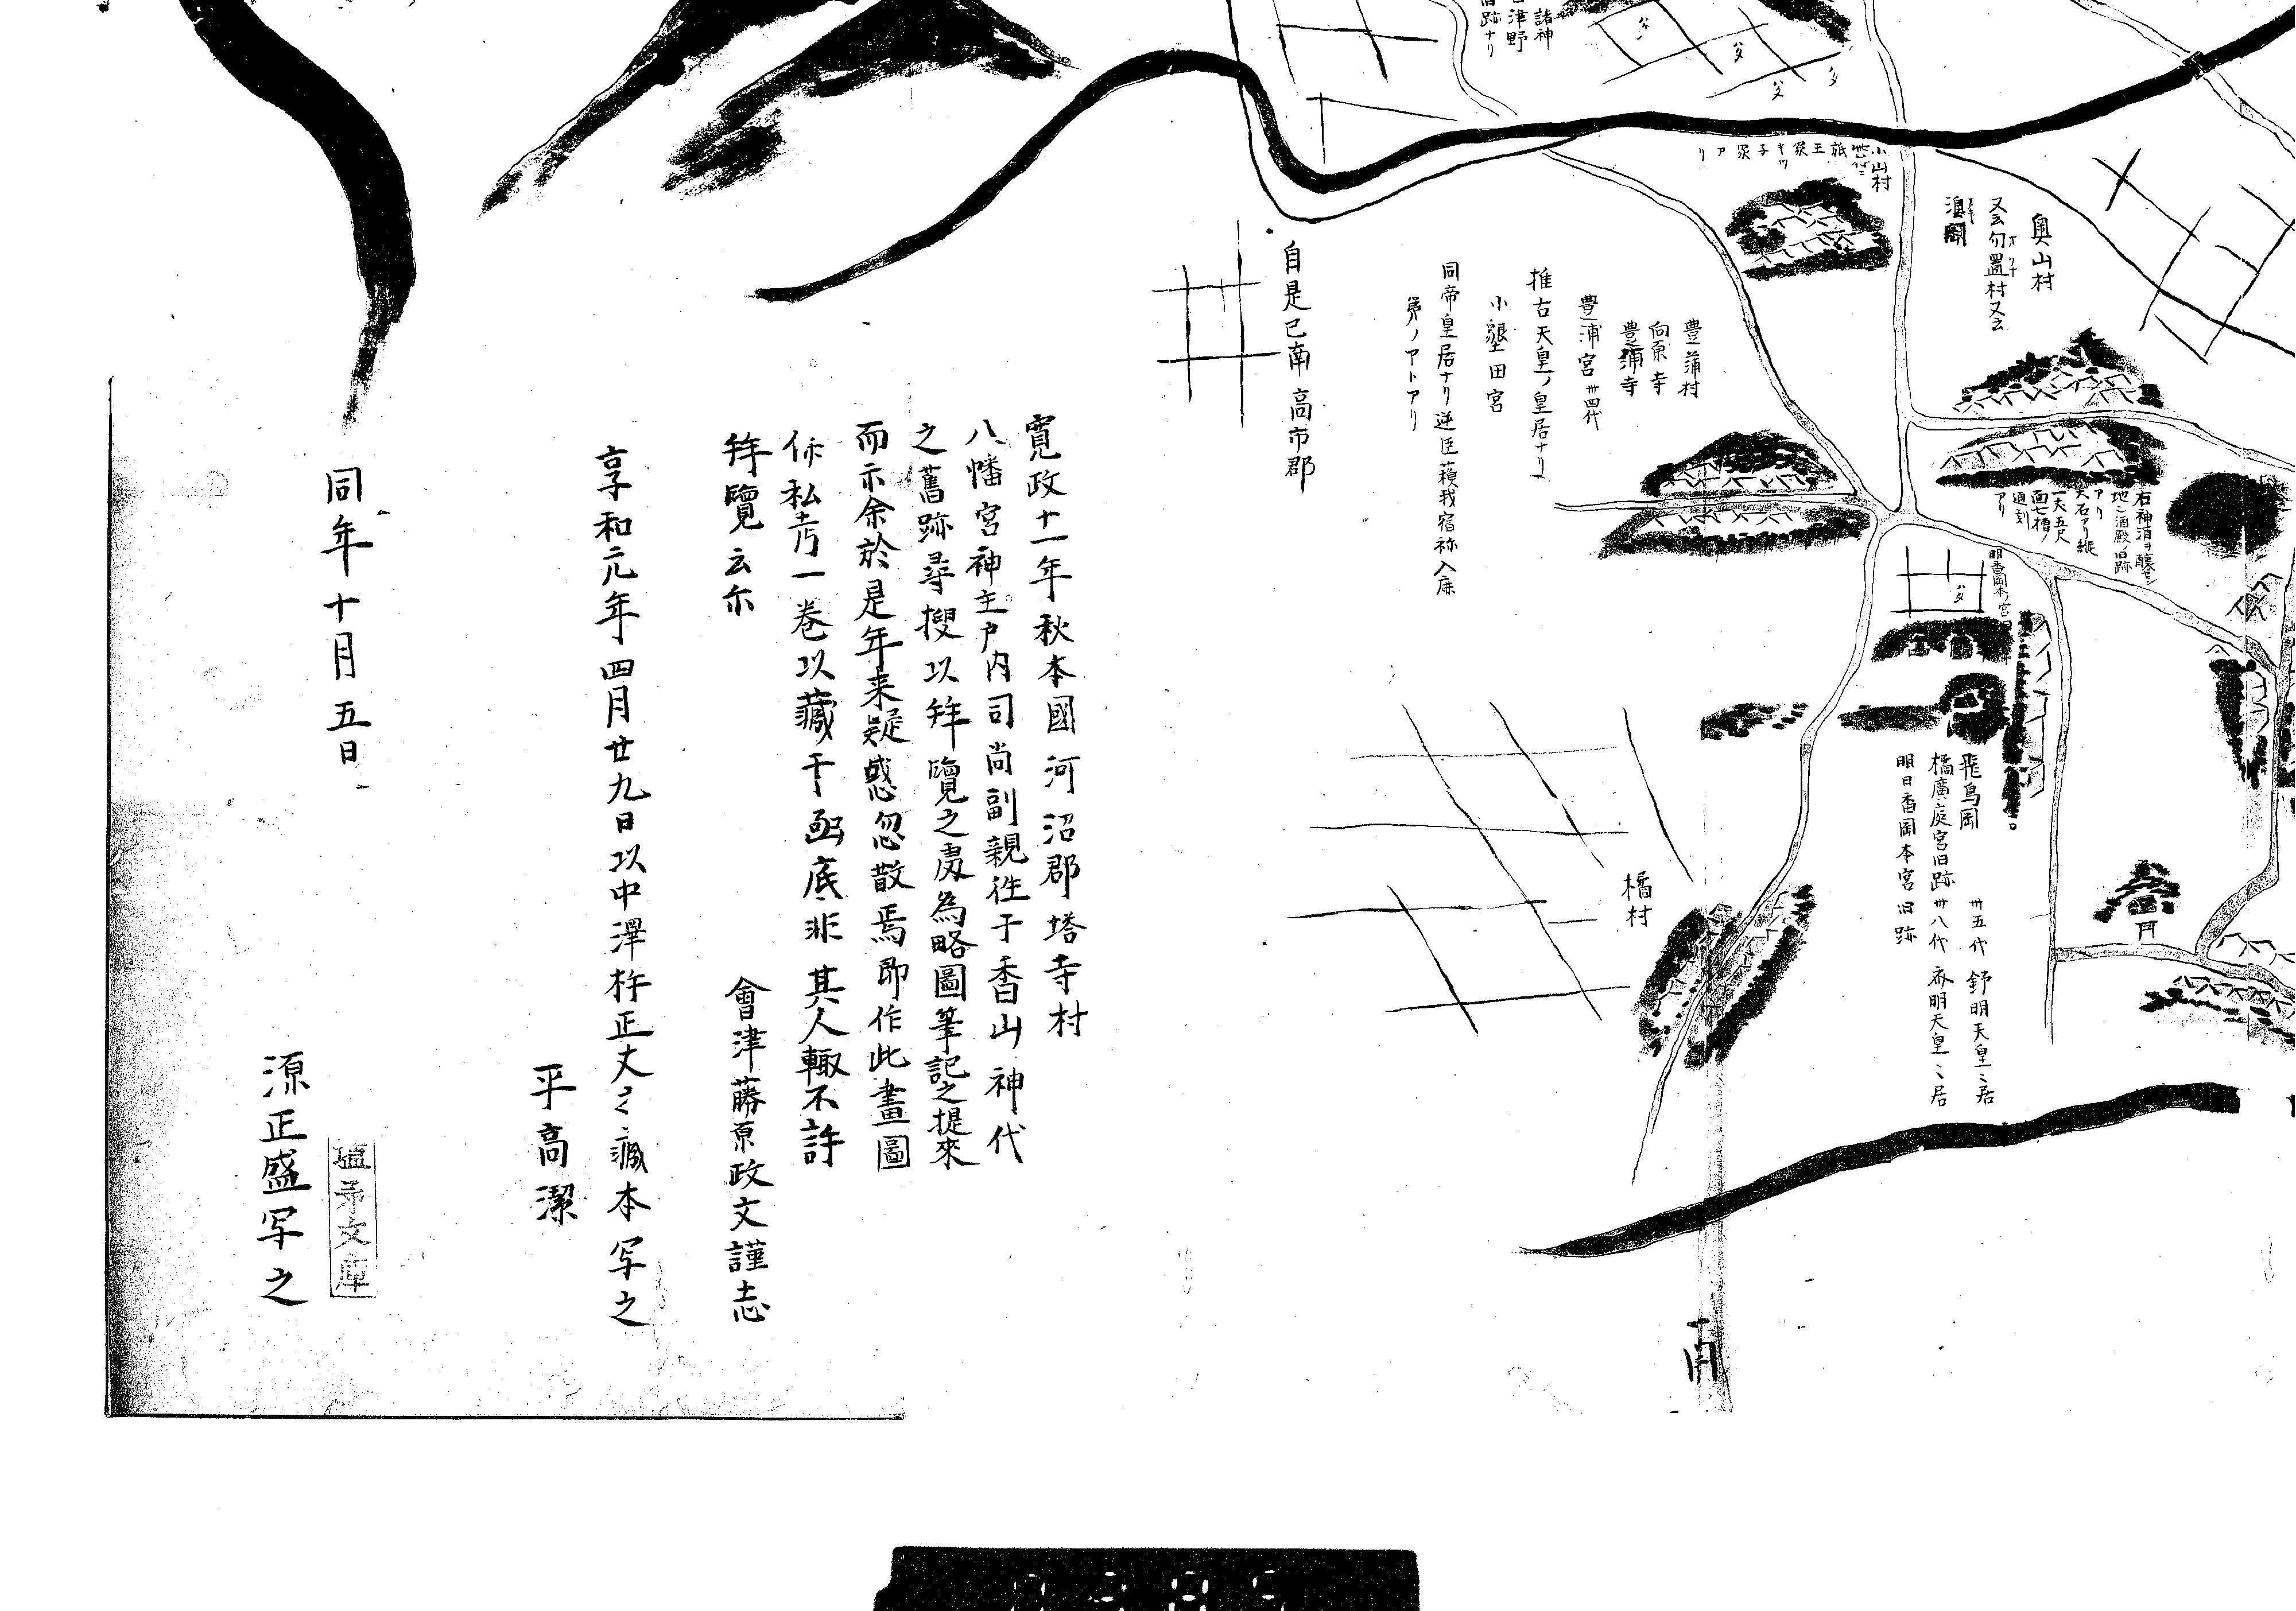 諸神
津野
旧跡ナリ
小山村
奥山村
又云勿置村又云
豊蒲村
向原寺
豊浦寺
豊浦宮 卅四代
推古天皇ノ皇居ナリ
小墾田宮
同帝皇居ナリ逆臣蘓我宿祢入鹿
自是已南高市郡
石神酒ヲ醸セシ
地ニシ酒殿旧跡
アリ
大石アリ縦
一丈五尺
面七槽ノ
道刻
アリ
明日香岡本ノ宮旧
飛鳥岡 卅五代 舒明天皇ミ居
橘廣庭宮旧跡卅八代 斉明天皇ミ居
明日香岡本宮旧跡
橘村
南
寛政十一年秋本國河沼郡塔寺村
八幡宮神主戸内司尚副親往于香山神代
之舊跡尋搜以拜覽之處為略圖筆記之提來
而示余於是年来疑惑忽散焉即作此畫圖
作私考一巻以藏于函底非其人輙不許
拜覽云尓
會津藤原政文謹志
享和元年四月廿九日以中澤杵正丈之蔵本写之
平高潔
同年十月五日
源正盛写之
文庫